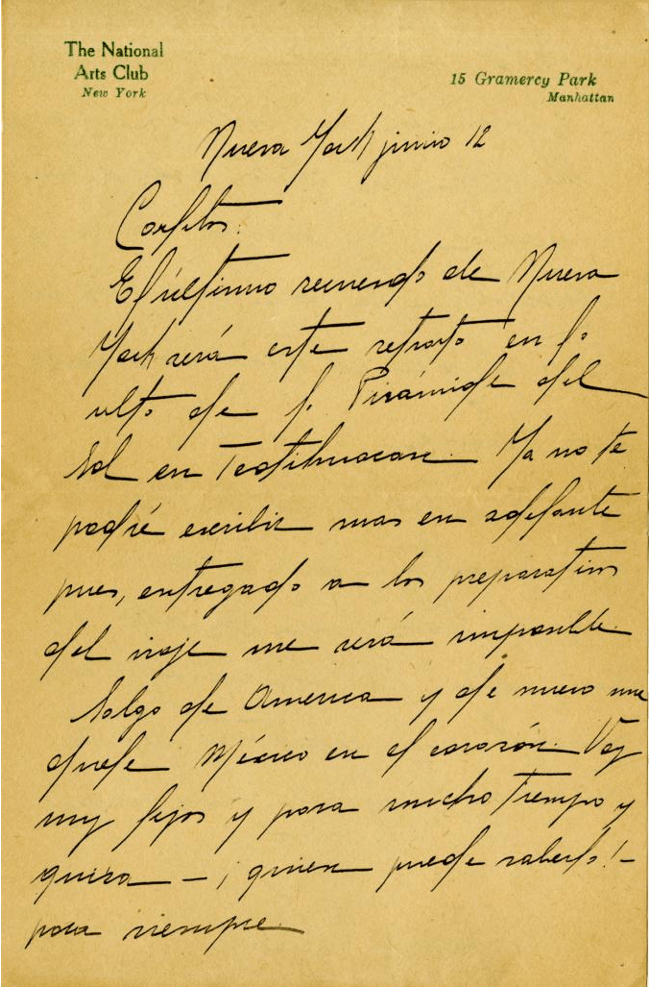 The National
Arts Club
New York
15 Gramercy Park
Manhattan
Nueva York junio 12
Carlitos:
El último recuerdo de Nueva
York será este retrato en lo
alto de la Pirámide del
Sol en Teotihuacan. Ya no te
podré escribir mas en adelante
pues, entregado a los preparativos
del viaje me será imposible
Salgo de America y de nuevo me
duele México en el corazón. Voy
muy lejos y para mucho tiempo y
quiza – ¡quien puede saberlo! –
para siempre